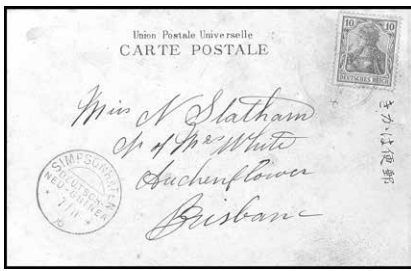 Union Postale Universelle
CARTE POSTALE
10 10
DEUTSCHES REICH
Miss N Statham
c/o Mrs White
Auchenflower
Brisbane
SIMPSONHAFEN
DEUTSCH-
NEU-GUINEA
きかは便郵